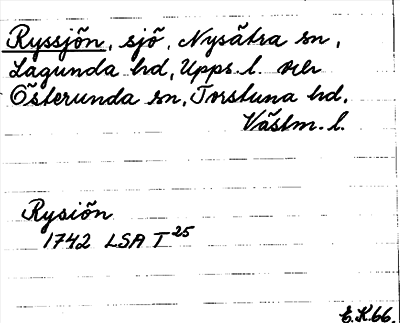 Ryssjön, sjö, Nysätra sn,
Lagunda hd, Upps. l. och
Österunda sn, Torstuna hd,
Västm. l.
Rysiön
1742 LSA T25
E.K.66.